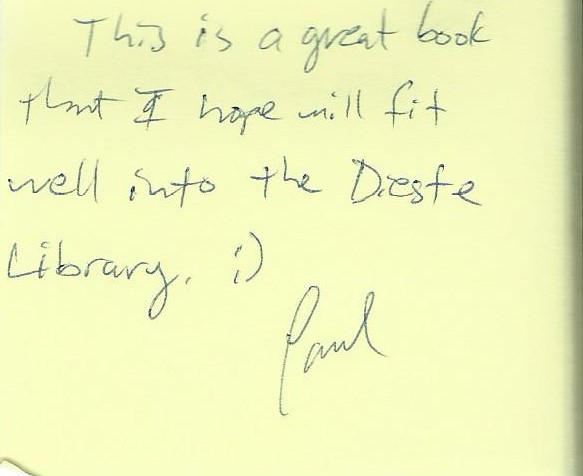 This is a great book
that I hope will fit
well into the Dieste
Library. ;)
Paul